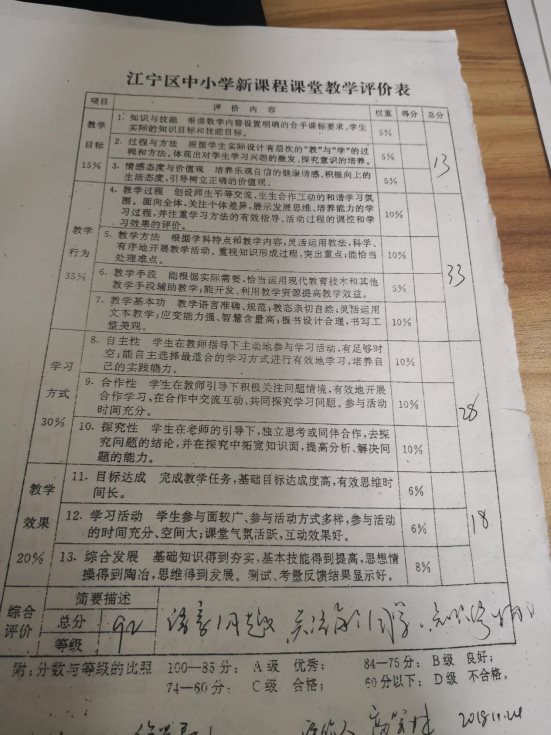 江宁区中小学新课程课堂教学评价表
项目 评价内容 权重 得分 总分
教学目标 15%
1. 知识与技能 根据教学内容设置明确的合乎课标要求、学生
实际的知识目标和技能目标。 5%
2. 过程与方法 根据学生实际设计有层次的“教”与“学”的过
程和方法。体现出对学生学习兴趣的激发、探究意识的培养。 5%
3. 情感态度与价值观 培养乐观自信的健康情感、积极向上的
生活态度,引导树立正确的价值观。 5%
13
教学行为 35%
4. 教学过程 创设师生平等交流、生生合作互动的和谐学习氛
围。面向全体,关注个体差异,展示发展思维,培养能力的学
习过程,并注重学习方法的有效指导、活动过程的调控和学
习效果的评价。 10%
5. 教学方法 根据学科特点和教学内容,灵活运用教法,科学、
有序地开展教学活动。重视知识形成过程,突出重点;能恰当
处理难点。 10%
6. 教学手段 能根据实际需要,恰当运用现代教育技术和其他
教学手段辅助教学;能开发、利用教学资源提高教学效益。 5%
7. 教学基本功 教学语言准确、规范;教态亲切自然;灵活运用
文本教学;应变能力强、智慧含量高;板书设计合理,书写工
整美观。 10%
33
学习方式 30%
8. 自主性 学生在教师指导下主动地参与学习活动,有足够时
空;能自主选择最适合的学习方式进行有效地学习,培养自
己的实践能力。 10%
9. 合作性 学生在教师引导下积极关注问题情境,有效地开展
合作学习,在合作中交流互动、共同探究学习问题。参与活动
时间充分。 10%
10. 探究性 学生在老师的引导下,独立思考或同伴合作,去探
究问题的结论,并在探究中拓宽知识面,提高分析、解决问
题的能力。 10%
28
教学效果 20%
11. 目标达成 完成教学任务,基础目标达成度高,有效思维时
间长。 6%
12. 学习活动 学生参与面较广,参与活动方式多样,参与活动
的时间充分、空间大;课堂气氛活跃,互动效果好。 6%
13. 综合发展 基础知识得到夯实,基本技能得到提高,思想情
操得到陶冶,思维得到发展。测试、考量反馈结果显示好。 8%
18
综合评价
简要描述
总分 92
等级
附:分数与等级的比照 100—85分: A级 优秀; 84—75分: B级 良好;
74—60分: C级 合格; 60分以下: D级 不合格。
2018.11.24